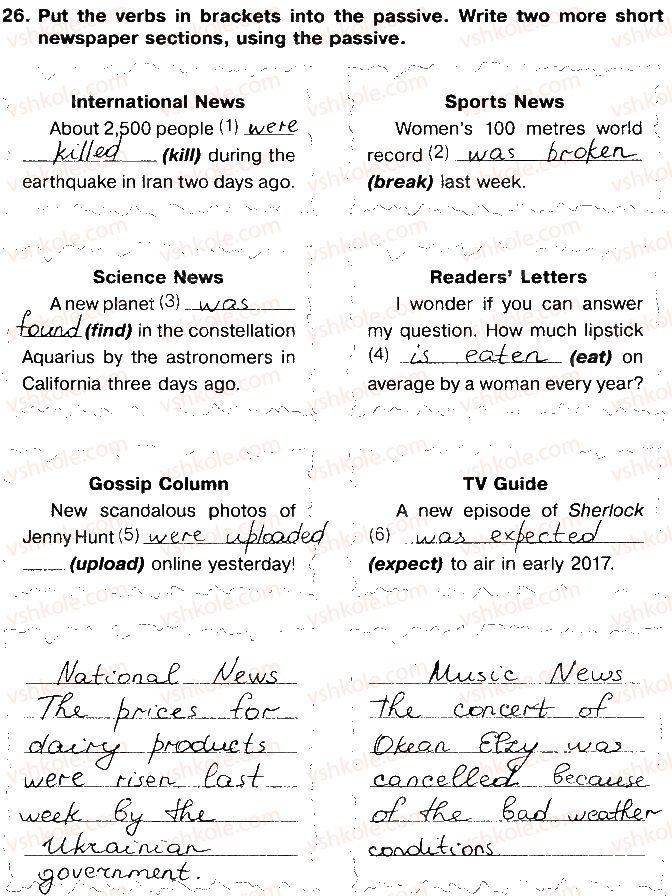 26. Put the verbs in brackets into the passive. Write two more short
newspaper sections, using the passive.
International News
About 2,500 people (1) were
killed (kill) during the
earthquake in Iran two days ago.
Sports News
Women's 100 metres world
record (2) was broken
(break) last week.
Science News
A new planet (3) was
found (find) in the constellation
Aquarius by the astronomers in
California three days ago.
Readers' Letters
I wonder if you can answer
my question. How much lipstick
(4) is eaten (eat) on
average by a woman every year?
Gossip Column
New scandalous photos of
Jenny Hunt (5) were uploaded
(upload) online yesterday!
TV Guide
A new episode of Sherlock
(6) was expected
(expect) to air in early 2017.
National News
The prices for
dairy products
were risen last
week by the
Ukrainian
government.
Music News
the concert of
Okean Elzy was
cancelled because
of the bad weather
conditions
vshkole.com